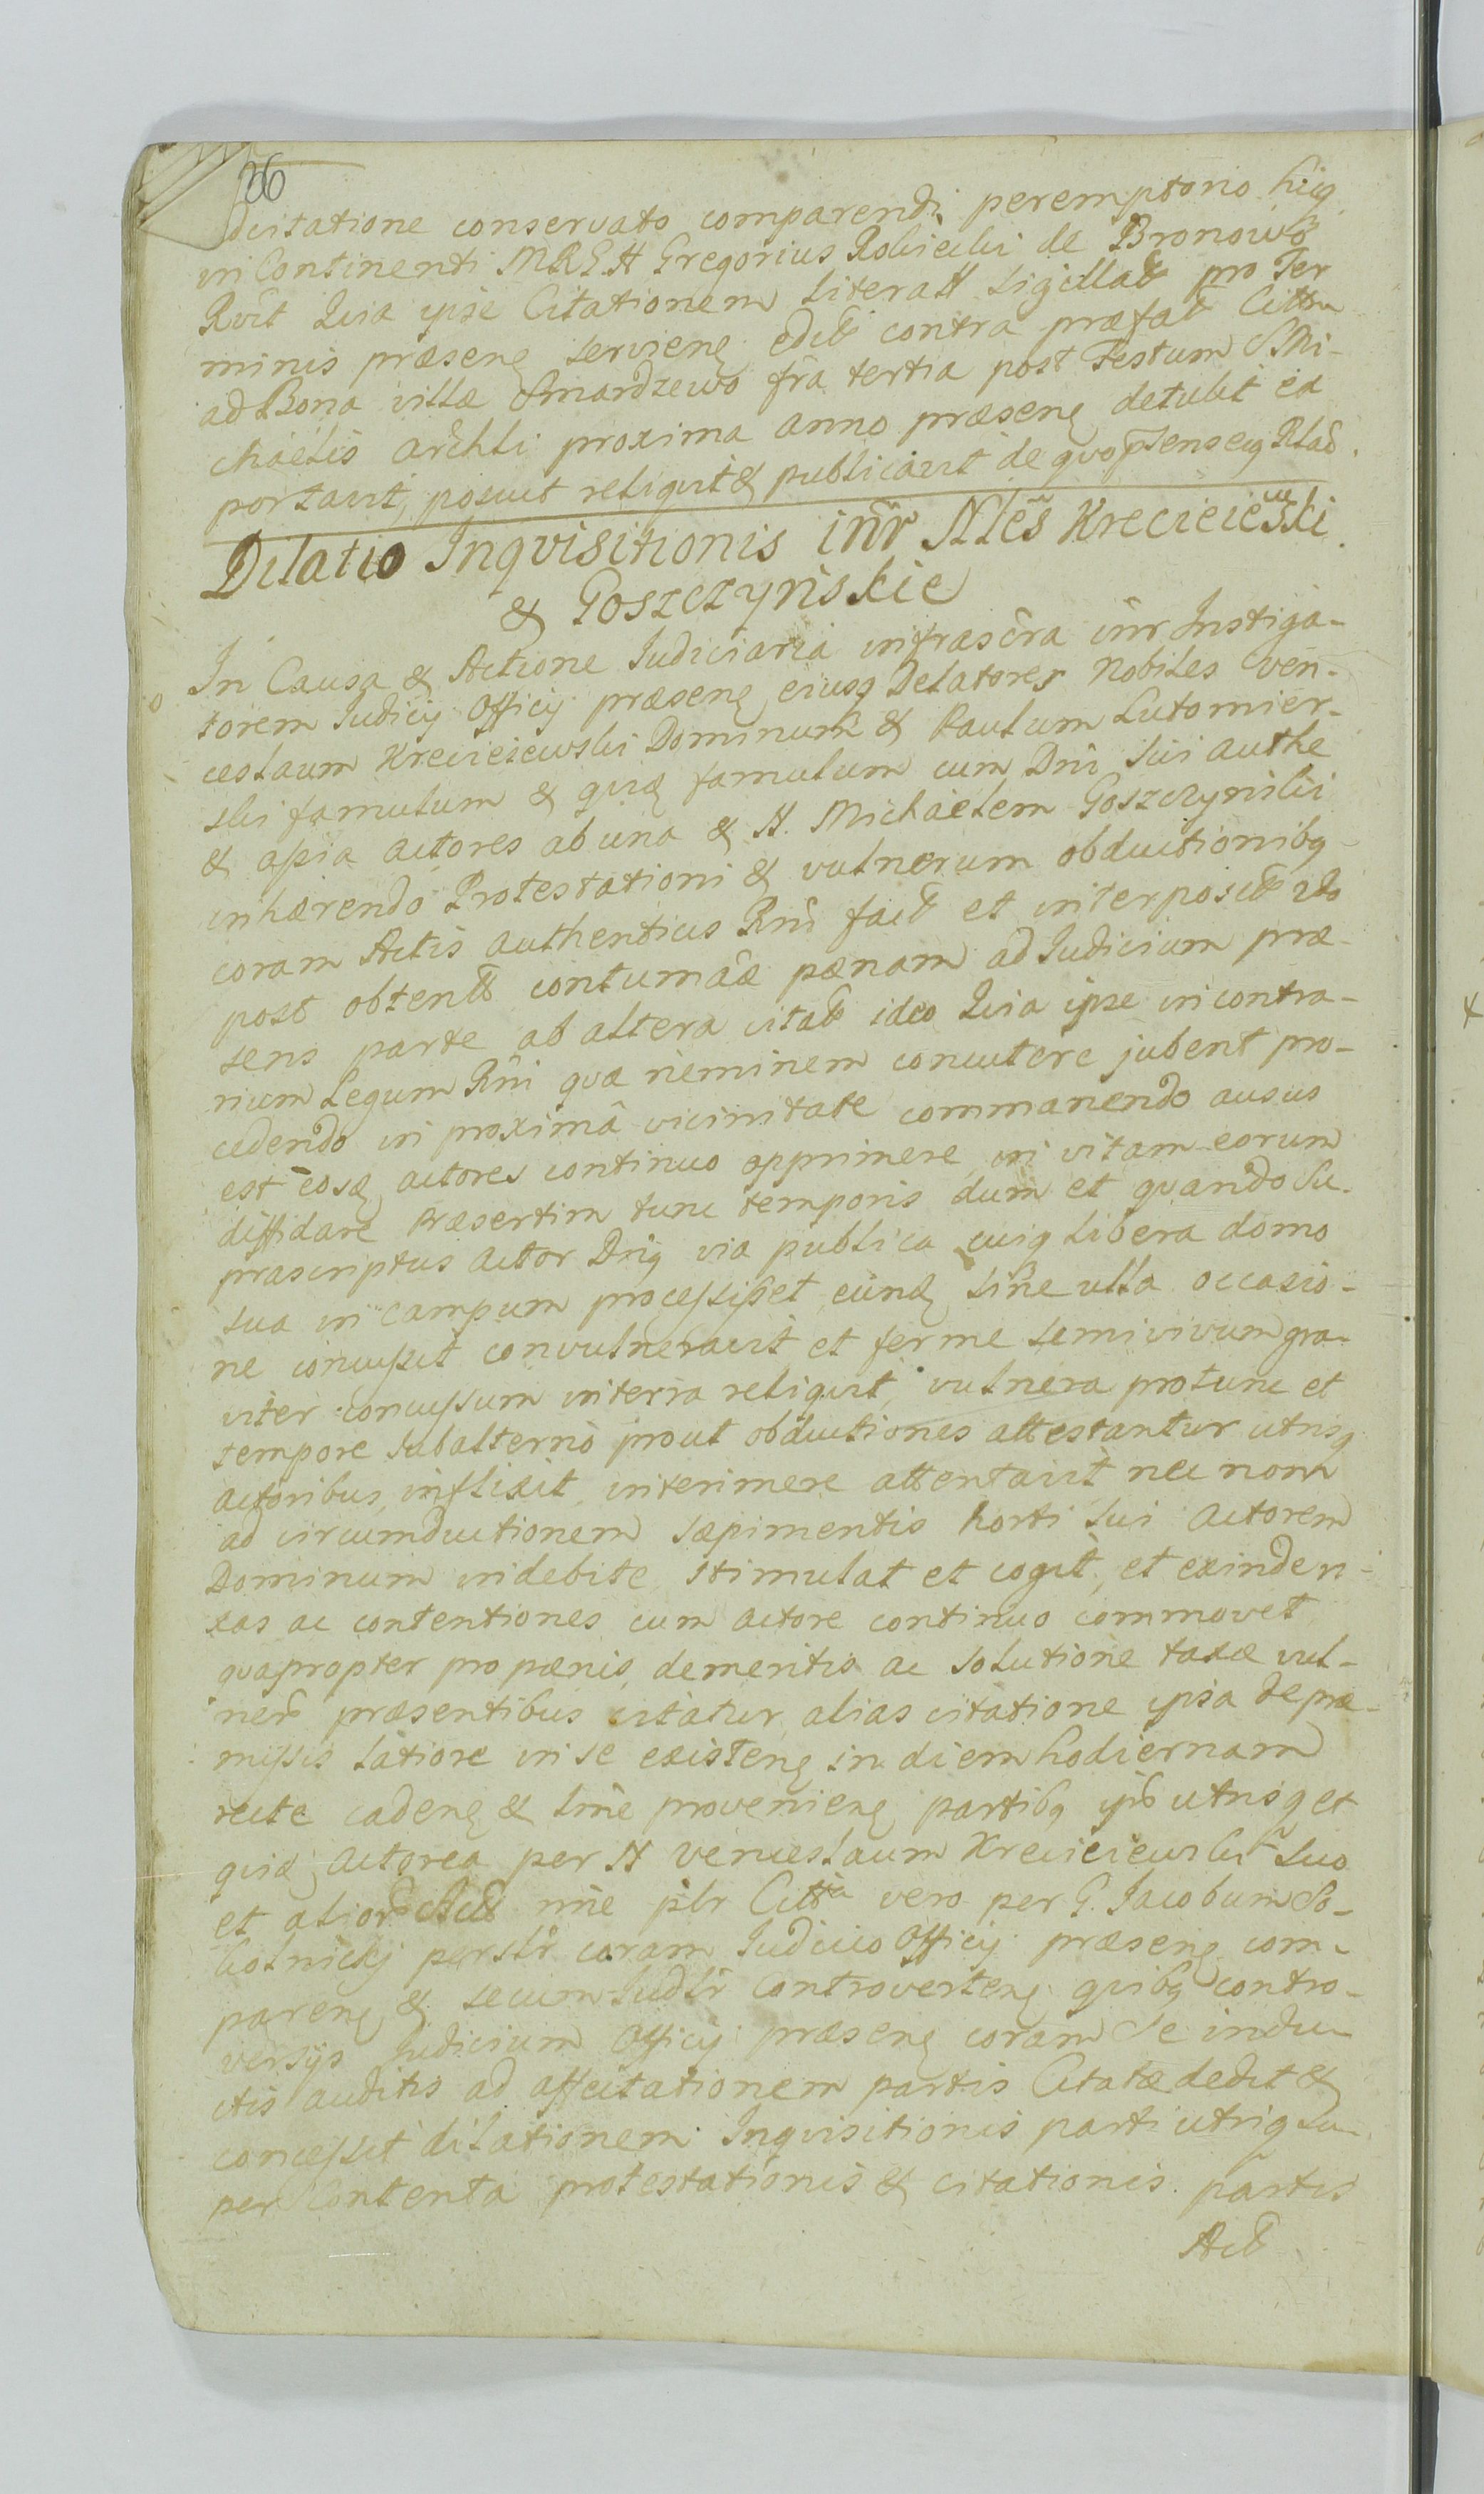 36
Citatione conservato comparendi peremptorio huig
in Continenti MRGH Gregorius Robiecki de Bronowo
Rvit Quia ipse Citationem literall sigillatt pro Ter
minis præseng servieng editt contra præfatt Cittm
ad Bona villæ Smardzewo fra tertia post Festum S Mi-
chaelis Archli proxima anno præseng detulit ea
portavit, posuit reliqvit & publicavit de qvo
Dilatio Inqvisitionis inr Nles Krecieiewski
& Goszczynskie
In Causa & Actione Judiciaria infrascra inr Instiga-
torem Judicy Officy præseng eiusq Delatores Nobiles Ven-
ceslaum Krecieiewski Dominum & Paulum Lutomier-
ski famulum & qvq famulum cum Dni sui authe
& assia actores ab una & N. Michaelem Goszczynski
inhærendo Protestationi & vulnerum obductionibq
coram Actis authenticis Rni factt et interpositt
post obtentt contumaæ pænam ad Judicium præ-
sens parte ab altera citatt ideo Quia ipse in contra-
rium Legum Rni qvæ neminem concutere jubent pro-
cedendo in proxima vicinitate commanendo ausus
est eosq actores continuo opprimere in vitam eorum
diffidare præsertim tunc temporis dum et qvando Su-
prascriptus Actor Dnq via publica cuiq libera domo
sua in campum processisset eundq sine ulla occasio-
ne concussit convulneravit et ferme semivivum gra-
viter concussum in terra reliqvit, vulnera protunc et
tempore subalterno prout obductiones attestantur utrisq
actoribus inflixit, interimere attentavit nec non
ad circumductionem sæpimentis horti sui Actorem
Dominum indebite stimulat et cogit, et exinde ri-
xas ac contentiones cum actore continuo commovet
qvapropter pro pænis, demeritis ac solutione taxæ vul-
nerum præsentibus citatur alias citatione ipsa de præ-
missis latiore in se existeng in diem hodiernam
recte cadeng & sine provenieng partibq ipsis utrisq et
qvidem Actorea per N Venceslaum Krecieiewski suo
et alior Actt nne plr Citta vero per G. Jacobum So-
bolnicky perslr coram Judicio Officy præseng com-
pareng & secum Judlr Controverteng qvibq contro-
versys Judicium Officy præseng coram Se indu-
ctis auditis ad affectationem partis Citatæ dedit &
concessit dilationem Inqvisitionis parti utriq su-
per Contenta protestationis & citationis partis
Actt